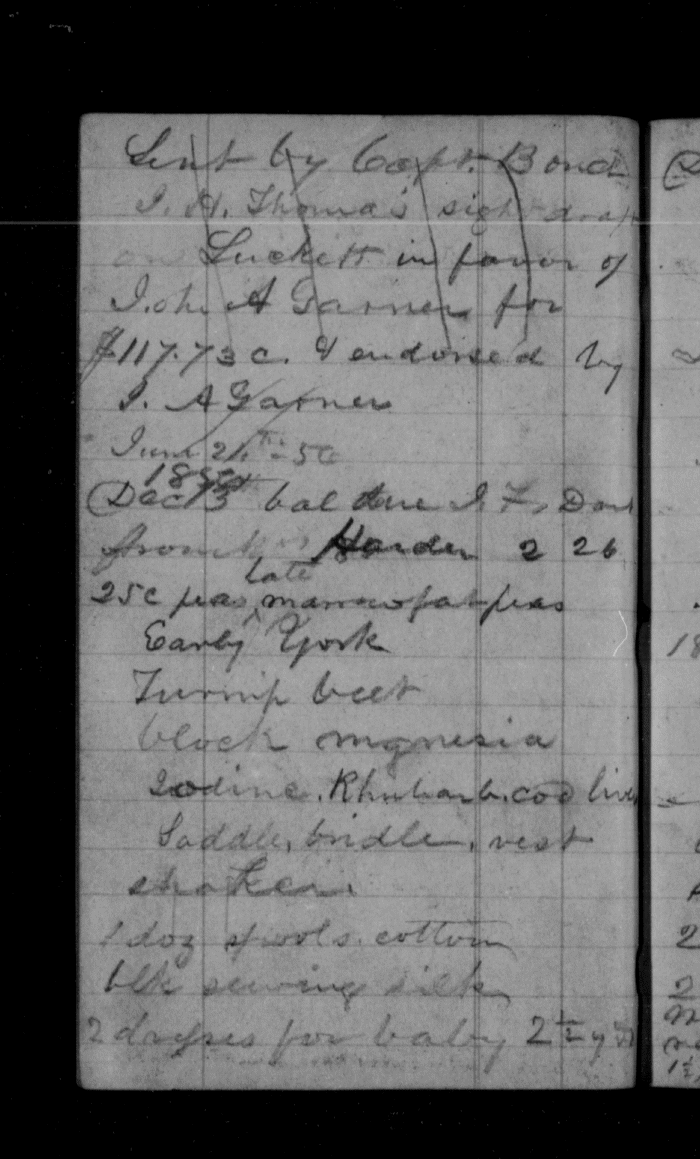 Sent by Capt. Bond
I. H. Thomas's sight draft
on Luckett in favor of
John A Garner for
$117.73 c. & endorsed by
I. A Garner
June 21th - 56
1856
Dec 13 bal due I. F.
from Harden 2 26
late
25c peas, marrowfat peas
Early York
Turnip beet
block mgnesia
Iodine. Rhubarb. cod live
Saddle, bridle, vest
shaker.
1 doz spools. cotton
blk sewing silk
2 dresses for baby 2 1/2 yds